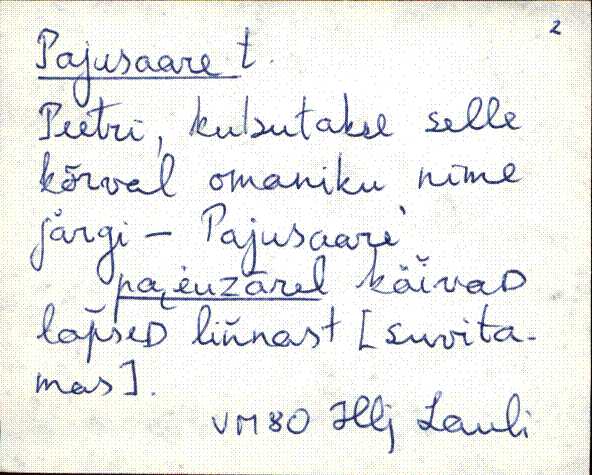 2
Pajusaare t.
Peetri, kutsutakse selle
kõrval omaniku nime
järgi – Pajusaare'
käivaD
lapseD liñnast [suvita-
mas].
VM80 Hlj Lauli